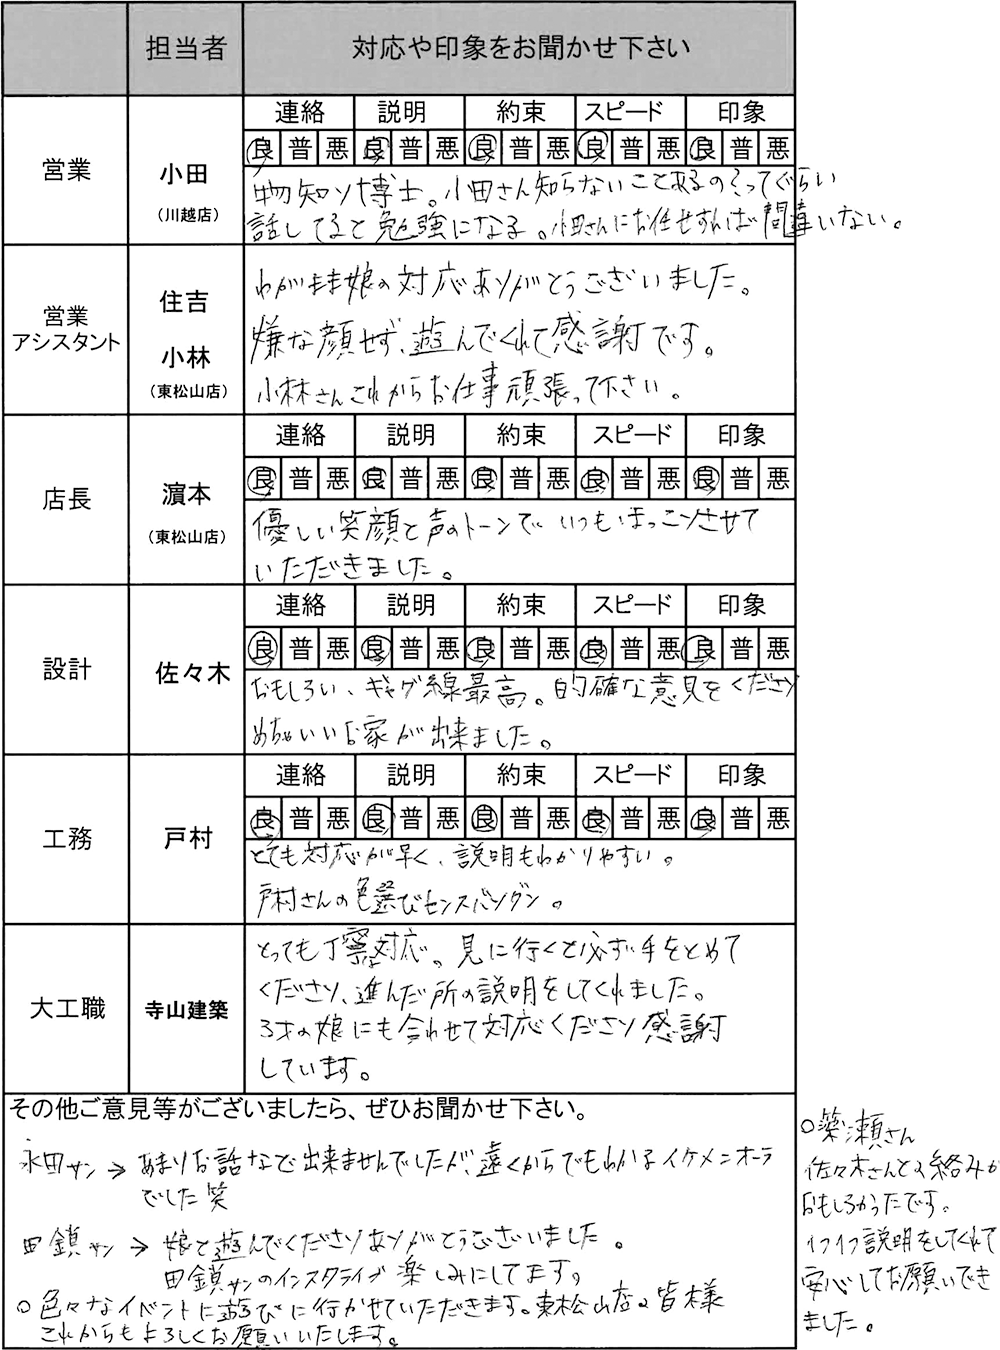 担当者 対応や印象をお聞かせ下さい
営業 小田
(川越店)
連絡 説明 約束 スピード 印象
良 普 悪 良 普 悪 良 普 悪 良 普 悪 良 普 悪
物知り博士。小田さん知らないことあるの?ってぐらい
話してると勉強になる。小田さんにお任せすれば間違いない。
営業
アシスタント
住吉
小林
(東松山店)
わがまま娘の対応ありがとうございました。
嫌な顔せず、遊んでくれて感謝です。
小林さんこれからお仕事頑張って下さい。
店長 濵本
(東松山店)
連絡 説明 約束 スピード 印象
良 普 悪 良 普 悪 良 普 悪 良 普 悪 良 普 悪
優しい笑顔と声のトーンで いつもほっこりさせて
いただきました。
設計 佐々木
連絡 説明 約束 スピード 印象
良 普 悪 良 普 悪 良 普 悪 良 普 悪 良 普 悪
おもしろい、ギャグ線最高。的確な意見をくださり
めちゃいいお家が出来ました。
工務 戸村
連絡 説明 約束 スピード 印象
良 普 悪 良 普 悪 良 普 悪 良 普 悪 良 普 悪
とても対応が早く、説明もわかりやすい。
戸村さんの色選びセンスバツグン。
大工職 寺山建築
とっても丁寧な対応。見に行くと必ず手をとめて
くださり、進んだ所の説明をしてくれました。
3才の娘にも合わせて対応くださり感謝
しています。
その他ご意見等がございましたら、ぜひお聞かせ下さい。
永田サン→ あまりお話など出来ませんでしたが、遠くからでもわかるイケメンオーラ
でした笑
田鎖サン→ 娘と遊んでくださりありがとうございました。
田鎖サンのインスタライブ楽しみにしてます。
○色々なイベントに遊びに行かせていただきます。東松山店の皆様
これからもよろしくお願いいたします。
○簗瀬さん
佐々木さんとの絡みが
おもしろかったです。
1つ1つ説明をしてくれて
安心してお願いでき
ました。